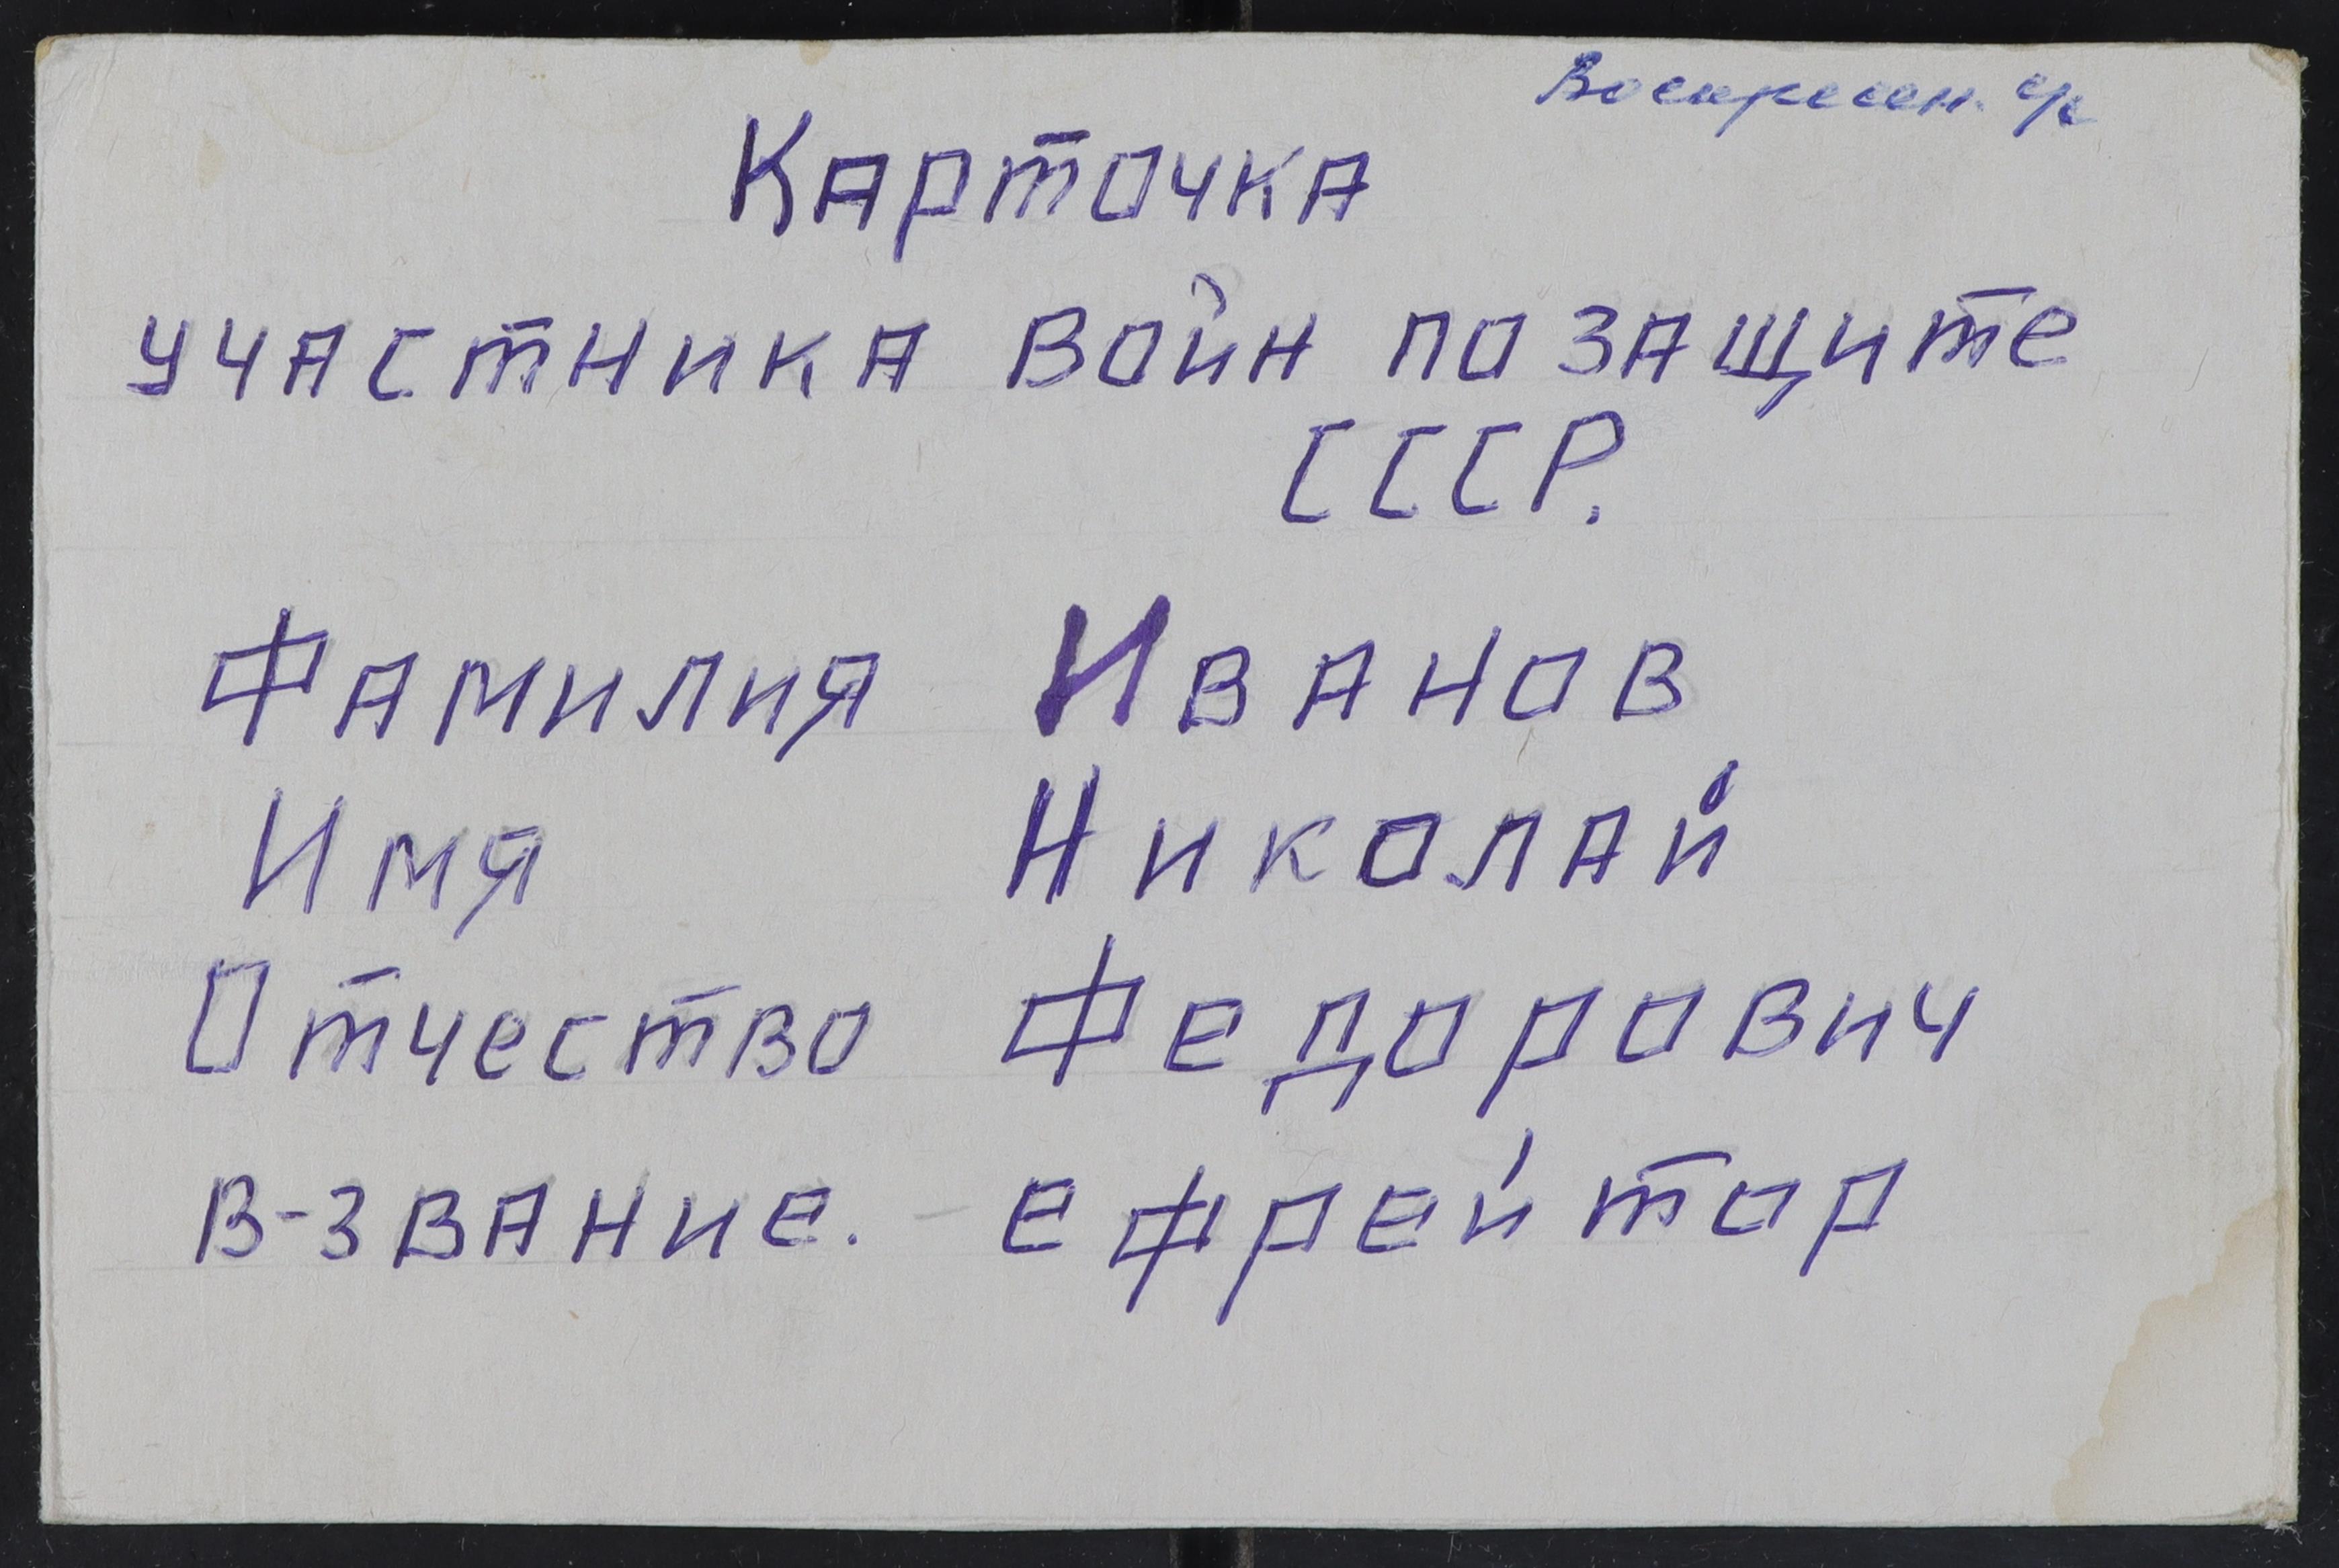 Воскресен. с/с
Карточка
участника войн по защите
СССР.
Фамилия Иванов
Имя Николай
Отчество Федорович
в-звание. ефрейтор